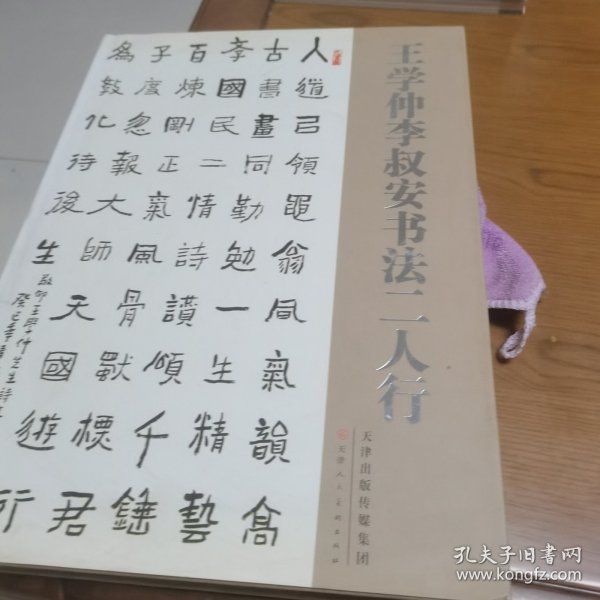 王学仲李叔安书法二人行
天津出版传媒集团
天津人民美術出版社
人道己領黽翁風氣韻高
古書畫同勤勉一生精藝
孝國民二情詩讚頌千鍾
百煉剛正氣風骨獻標君
子度忽報大師天國遊行
為教化待後生
敬師王學仲先生詩
癸巳春
孔夫子旧书网
www.kongfz.com